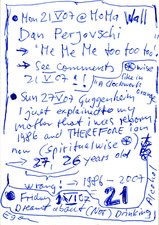 Mon 21 V 07 @ MoMa Wall
Dan Perjovschi
'Me Me Me too too too'.
→ See Comments
21 V 07 !!
wise
like in
"A Clockwork
orange
Sun 27 V 07 Guggenheim
I just explained to my
mother that I was reborn
1986 and THEREFORE I am
now (spiritual wise
→ 27/26 years old
wrong! → 1986 - 2007
Friday 1 VI 07 21
Dreamt about (Not) Drinking
Alcohol